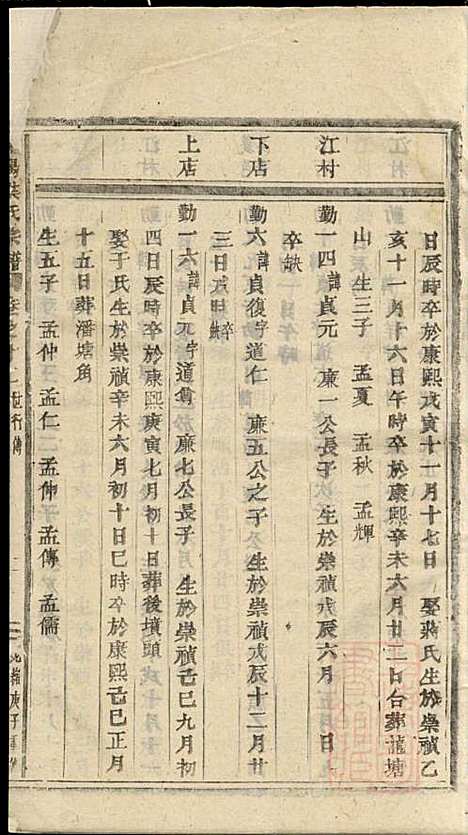 日辰時卒於康熙戊寅十一月十七日 娶蔣氏生於崇禎乙
亥十一月十六日午時卒於康熙辛未六月廿二日合葬龍塘
山 生三子 孟夏 孟秋 孟輝
江村
勤一四諱貞元 廉一公長子 生於崇禎戊辰六月 日
卒缺
下店
勤六諱貞復字道仁 廉五公之子 生於崇禎戊辰十二月廿
三日戌時
上店
勤一六諱貞 字道 廉七公長子 生於崇禎己巳九月初
四日辰時卒於康熙庚寅七月初十日葬後墳頭
娶于氏生於崇禎辛未六月初十日巳時卒於康熙己巳正月
十五日葬潘塘角
生五子 孟仲 孟仁 孟伸 孟傳 孟儒
氏宗譜
世行傳
庚子